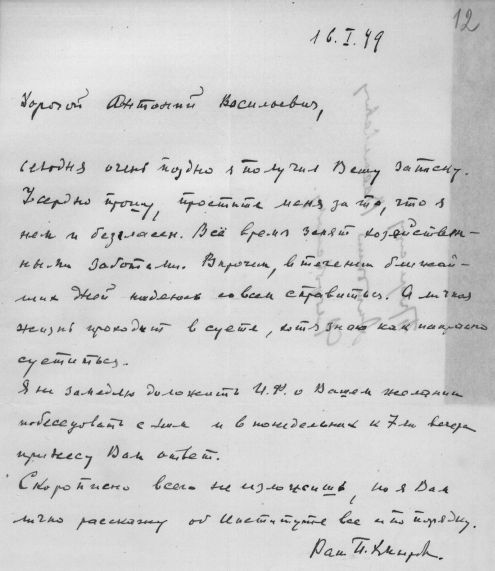 12
16.I.49
Дорогой Антоний Васильевич,
сегодня очень поздно я получил Вашу записку.
Усердно прошу, простите меня за то, что я
нем и безгласен. Всё время занят хозяйствен-
ными заботами. Впрочем, в течении ближай-
ших дней надеюсь совсем справиться. А личная
жизнь проходит в суете, хотя знаю как напрасно
суетиться.
Я не замедлю доложить И.Ф. о Вашем желании
побеседовать с ним и в понедельник к 7ми вечера
принесу Вам ответ.
Скорописно всего не изложишь, но я Вам
лично расскажу об Институте все и по порядку.
Ваш П.